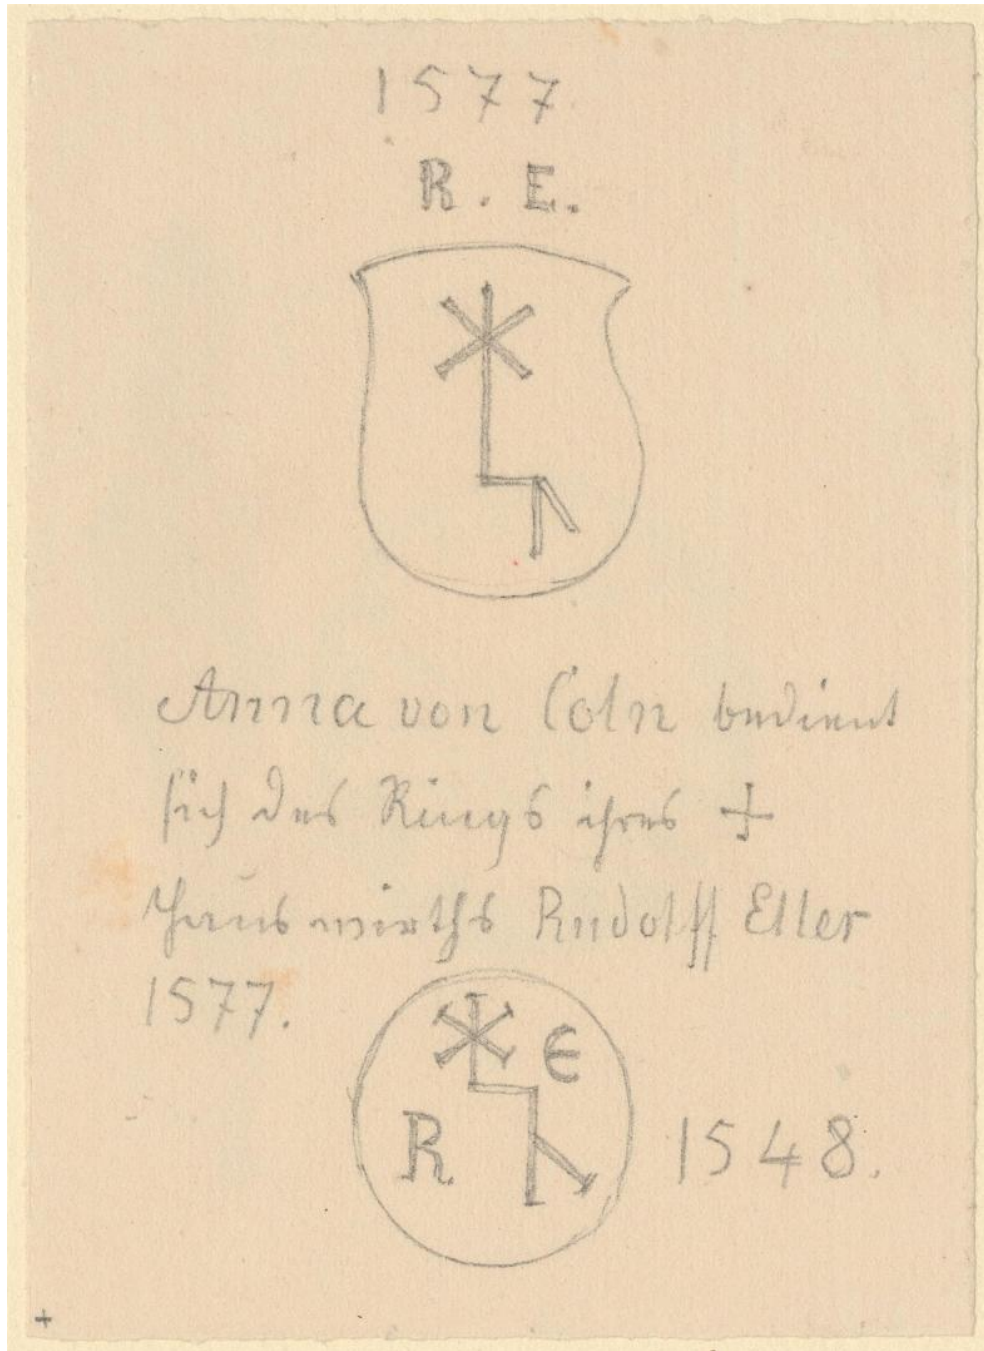 1577
R. E.
Anna von Cöln bedient
sich des Rings ihres +
Hauswirths Rudolff Eller
1577.
E
R 1548.